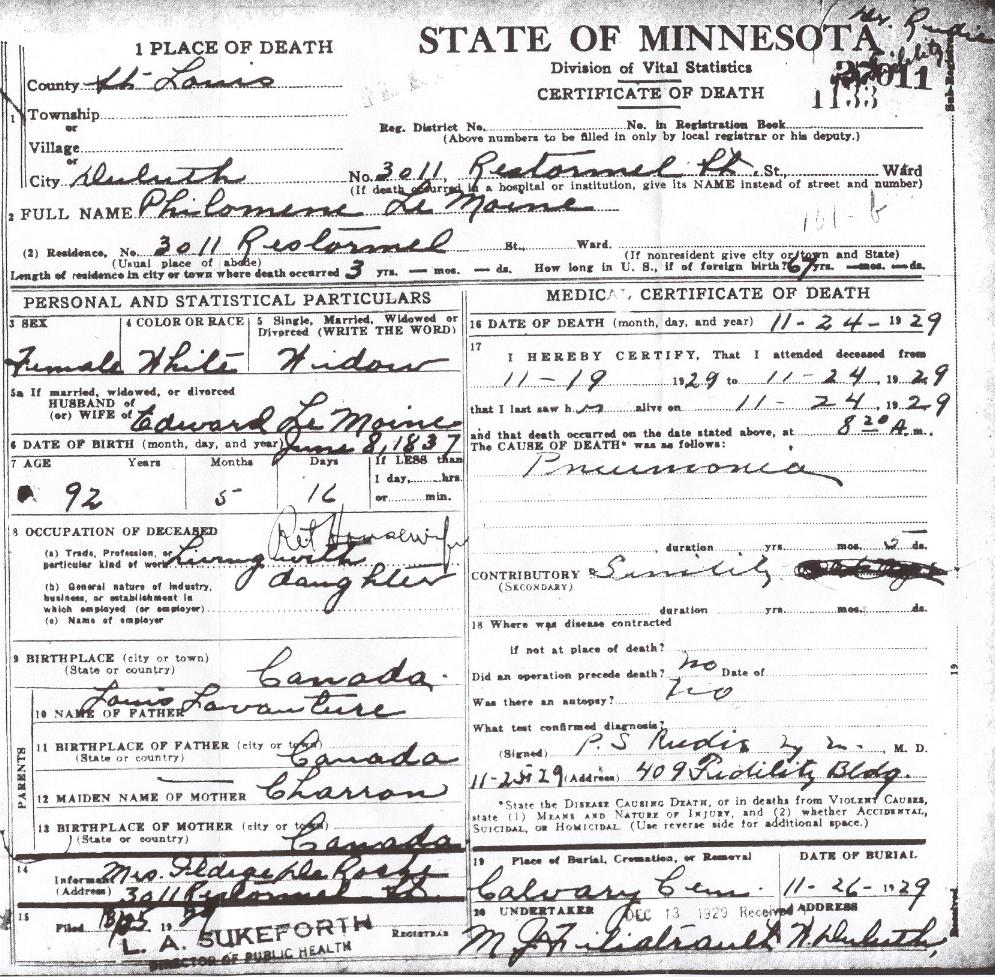 1 PLACE OF DEATH
STATE OF MINNESOTA
Division of Vital Statistics
CERTIFICATE OF DEATH
1133
County St Louis
Township
or
Village
or
City Duluth
Reg. District No. No. in Registration Book
(Above numbers to be filled in only by local registrar or his deputy.)
No. 3011, Restormel St. St., Ward
(If death occurred in a hospital or institution, give its NAME instead of street and number)
2 FULL NAME Philomene Le Moine
(2) Residence, No. 3011 Restormel St., Ward.
(Usual place of abode) (If nonresident give city or town and State)
Length of residence in city or town where death occurred 3 yrs. — mos. — ds. How long in U. S., if of foreign birth? 67 yrs. — mos. — ds.
PERSONAL AND STATISTICAL PARTICULARS
3 SEX 4 COLOR OR RACE 5 Single, Married, Widowed or Divorced (WRITE THE WORD)
Female White Widow
5a If married, widowed, or divorced
HUSBAND of
(or) WIFE of Edward Le Moine
6 DATE OF BIRTH (month, day, and year) June 8, 1837
7 AGE Years Months Days If LESS than
1 day, hrs.
92 5 16 or min.
8 OCCUPATION OF DECEASED Ret Housewife
(a) Trade, Profession, or
particular kind of work Living with
daughter
(b) General nature of industry,
business, or establishment in
which employed (or employer)
(c) Name of employer
9 BIRTHPLACE (city or town)
(State or country) Canada
PARENTS
10 NAME OF FATHER Louis Lavanture
11 BIRTHPLACE OF FATHER (city or town)
(State or country) Canada
12 MAIDEN NAME OF MOTHER Charron
13 BIRTHPLACE OF MOTHER (city or town)
(State or country) Canada
14
Informant Mrs.
(Address) 3011 Restormel St.
15
Filed 19 29
L. A. SUKEFORTH REGISTRAR
DIRECTOR OF PUBLIC HEALTH
MEDICAL CERTIFICATE OF DEATH
16 DATE OF DEATH (month, day, and year) 11-24-1929
17
I HEREBY CERTIFY, That I attended deceased from
11-19 1929 to 11-24, 1929
that I last saw her alive on 11-24, 1929
and that death occurred on the date stated above, at 8 20 A. m.
The CAUSE OF DEATH* was as follows:
Pneumonia
duration yrs. mos. 5 ds.
CONTRIBUTORY Senility
(SECONDARY)
duration yrs. mos. ds.
18 Where was disease contracted
if not at place of death?
Did an operation precede death? no Date of
Was there an autopsy? no
What test confirmed diagnosis?
(Signed) P. S. Rudie M. D.
11-25 29 (Address) 409 Fidility Bldg.
*State the DISEASE CAUSING DEATH, or in deaths from VIOLENT CAUSES,
state (1) MEANS AND NATURE OF INJURY, and (2) whether ACCIDENTAL,
SUICIDAL, OR HOMICIDAL. (Use reverse side for additional space.)
19 Place of Burial, Cremation, or Removal DATE OF BURIAL
Calvary Cem. 11-26-1929
20 UNDERTAKER DEC 13 1929 Received ADDRESS
M J Filiatrault W. Duluth,